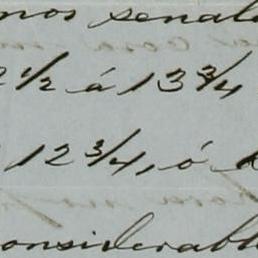 nos senal
2 1/2 á 13 3/4
12 3/4, ó
considerabl